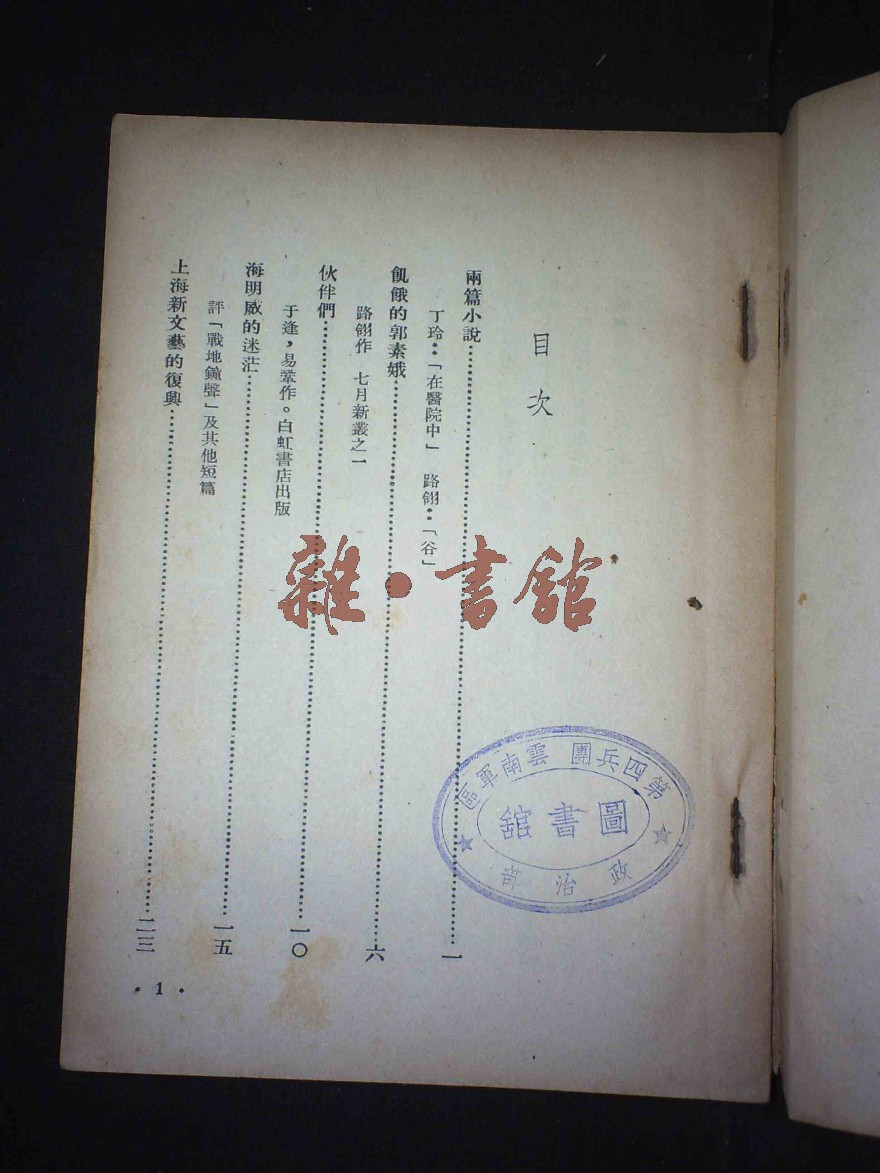 目次
兩篇小說……一
丁玲：「在醫院中」　路翎：「谷」
飢餓的郭素娥……六
路翎作　七月新叢之一
伙伴們……一〇
于逢，易鞏作。白虹書店出版
海明威的迷茫……一五
評「戰地鐘聲」及其他短篇
上海新文藝的復興……二三
• 1 •
雜·書館
第四兵團 雲南軍區
圖書舘
政治部